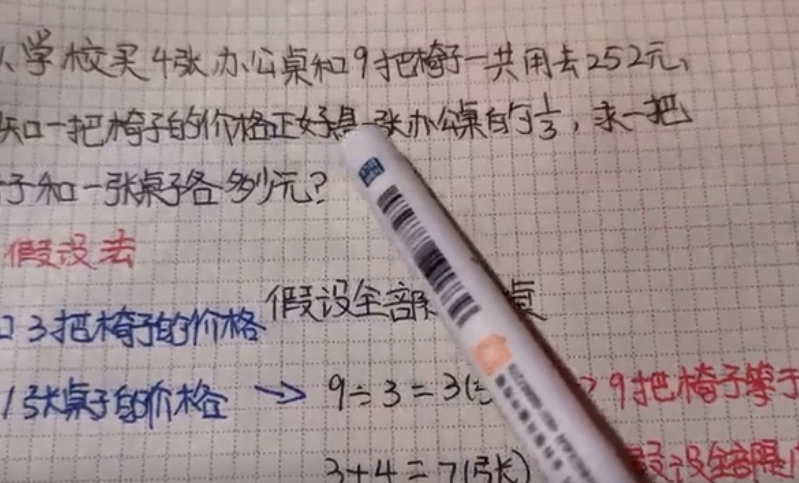 学校买4张办公桌和9把椅子一共用去252元、
知一把椅子的价格正好是一张办公桌的1/3,求一把
子和一张桌子各多少元?
假设法
假设全部 桌
3把椅子的价格
1张桌子的价格 → 9÷3=3(
9把椅子等于
3+4=7(张)
假设全部